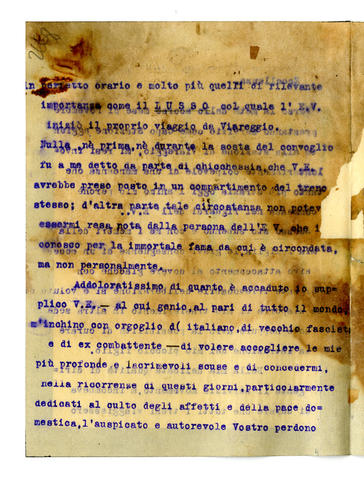 in perfetto orario e molto più quelli di rilevante
importanza come il L U S S O col quale l' E.V.
iniziò il proprio viaggio da Viareggio.
Nulla, nè prima, nè durante la sosta del convoglio
fu a me detto da parte di chicchessia, che V.E.
avrebbe preso posto in un compartimento del treno
stesso; d'altra parte tale circostanza non potev
essermi resa nota dalla persona dell'E.V. che i
conosco per la immortale fama da cui è circondata,
ma non personalmente.
Addoloratissimo di quanto è accaduto io sup-
plico V.E. — al cui genio, al pari di tutto il mondo,
m'inchino con orgoglio di italiano, di vecchio fascista
e di ex combattente — di volere accogliere le mie
più profonde e lacrimevoli scuse e di concedermi,
nella ricorrenza di questi giorni, particolarmente
dedicati al culto degli affetti e della pace do-
mestica, l'auspicato e autorevole Vostro perdono